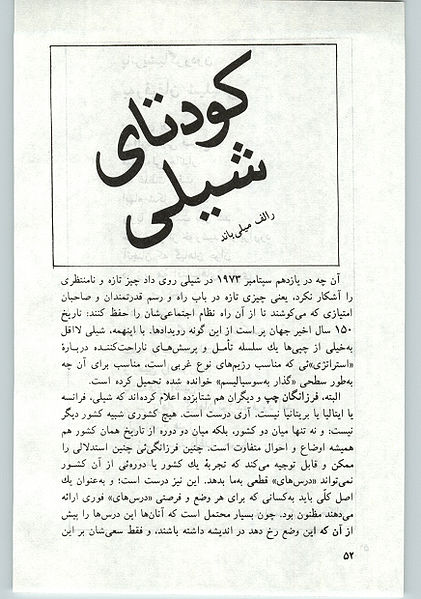 کودتای
شیلی
رالف میلی‌باند
آن چه در یازدهم سپتامبر ۱۹۷۳ در شیلی روی داد چیز تازه و نامنتظری
را آشکار نکرد، یعنی چیزی تازه در باب راه و رسم قدرتمندان و صاحبان
امتیازی که می‌کوشند تا از آن راه نظام اجتماعی‌شان را حفظ کنند: تاریخ
۱۵۰ سال اخیر جهان پر است از این گونه رویدادها. با اینهمه، شیلی لااقل
به‌خیلی از چپی‌ها یك سلسله تأمل و پرسش‌های ناراحت‌کننده دربارهٔ
«استراتژی»ئی که مناسب رژیم‌های نوع غربی است، مناسب برای آن چه
به‌طور سطحی «گذار به‌سوسیالیسم» خوانده شده تحمیل کرده است.
البته، فرزانگان چپ و دیگران هم شتابزده اعلام کرده‌اند که شیلی، فرانسه
یا ایتالیا یا بریتانیا نیست. آری درست است. هیچ کشوری شبیه کشور دیگر
نیست: و نه تنها میان دو کشور، بلکه میان دو دوره از تاریخ همان کشور هم
همیشه اوضاع و احوال متفاوت است. چنین فرزانگی‌ئی چنین استدلالی را
ممکن و قابل توجیه می‌کند که تجربهٔ یك کشور یا دوره‌ئی از آن کشور
نمی‌تواند «درس‌های» قطعی به‌ما بدهد. این نیز درست است؛ و به‌عنوان یك
اصل کلّی باید به‌کسانی که برای هر وضع و فرصتی «درس‌های» فوری ارائه
می‌دهند مظنون بود. چون بسیار محتمل است که آنان‌ها این درس‌ها را پیش
از آن که این وضع رخ دهد در اندیشه داشته باشند، و فقط سعی‌شان بر این
۵۲